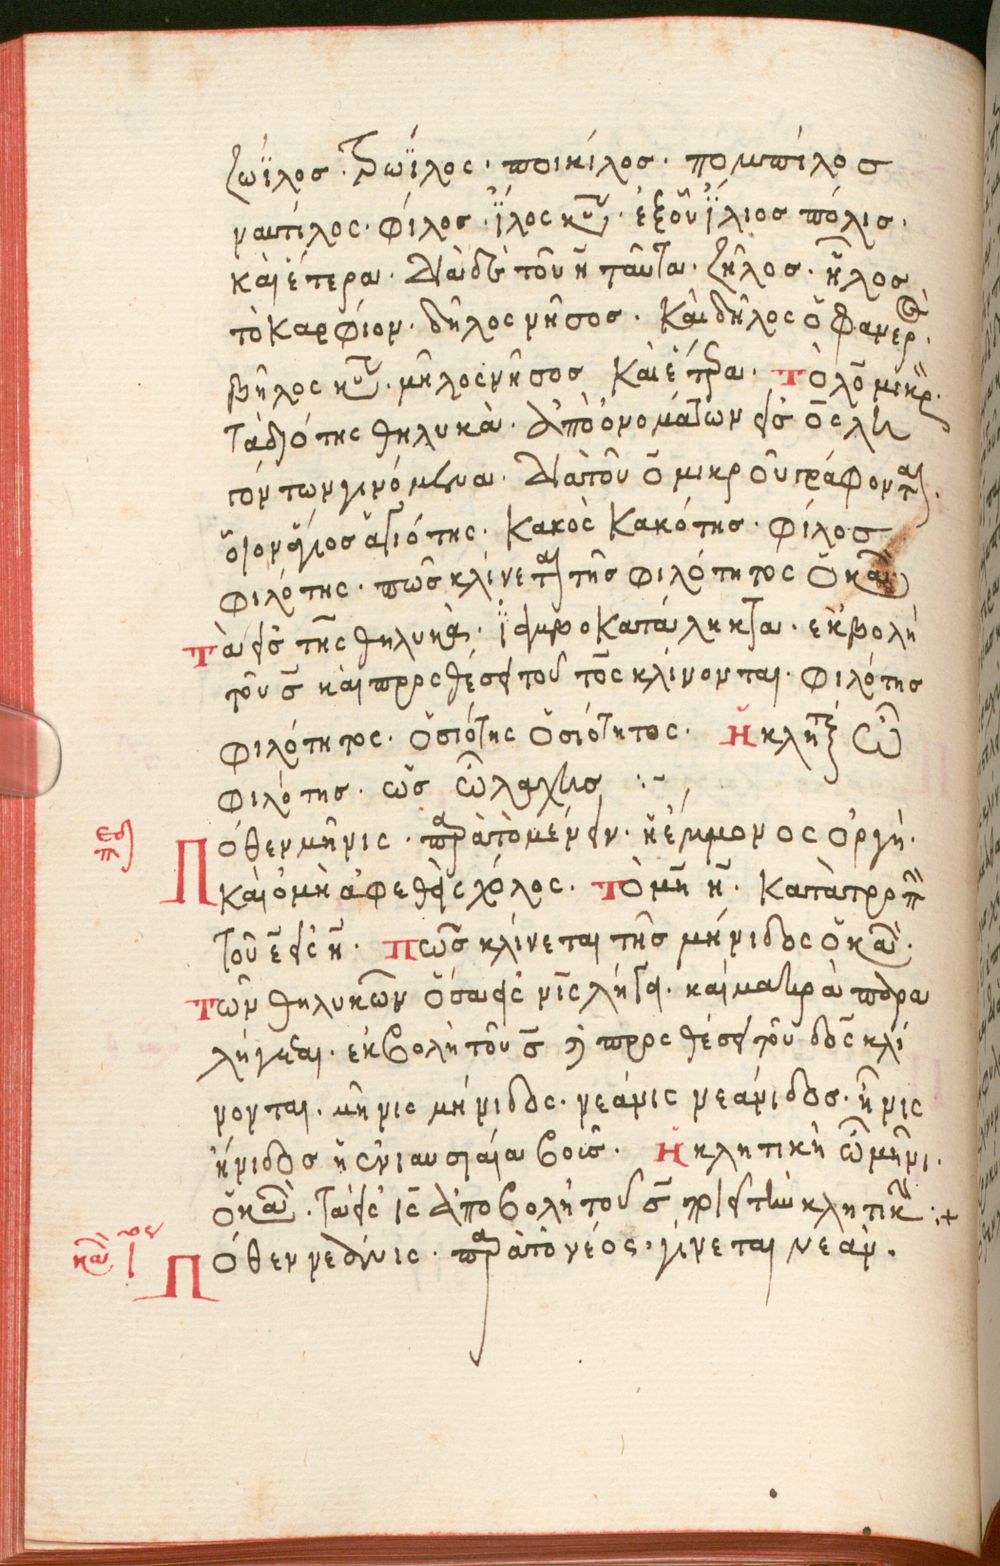 ζωΐλος · τρωΐλος · ποικίλος · πομπίλος
ναυτίλος · φίλος · ἴλος κυ · ἐξ οὗ ἴλιος πόλις ·
καὶ ἕτερα · Διὰ δὲ τοῦ η ταῦτα · ζῆλος · ἧλος
τὸ καρφίον · δῆλος νῆσος · Καὶ δῆλος ὁ φανερ ·
βῆλος κυ · μῆλος νῆσος Καὶ ἕτερα · Τὸ λο μικρ ·
Τὰ διὰ της θηλυκὰ · Ἀπὸ ὀνομάτων εἰς ος λη
τόντων γινόμενα · Διὰ τοῦ ο μικροῦ γράφονται ·
οἷον ἅγιος ἁγιότης · Κακὸς Κακότης · φίλος
φιλότης · πῶς κλίνεται τῆς φιλότητος ὁ καν
Τὰ εἰς της θηλυκὰ · εἰ μὴ ἀποκατάληκτα · ἐκβολῇ
τοῦ ς καὶ προσθέσει τοῦ τος κλίνονται · φιλότης
φιλότητος · ὁσιότης ὁσιότητος · Ἡ κλητι ὦ
φιλότης · ὡς ὦ λαχες :~
Πόθεν μῆνις · παρὰ τὸ μένειν · ἡ ἔμμονος ὀργὴ ·
Καὶ ὁ μὴ ἀφεθεὶς χόλος · Τὸ μη η · Κατὰ τροπ
τοῦ ε εἰς η · Πῶς κλίνεται τῆς μήνιδος ὁ καν ·
Τῶν θηλυκῶν ὅσα εἰς νις λήγει · καὶ μακρᾷ παρα
λήγεται · ἐκβολῇ τοῦ ς καὶ προσθέσει τοῦ δος κλί
νονται · μῆνις μήνιδος · νεάνις νεάνιδος · ἦνις
ἤνιδος ἡ ἐνιαυσιαία βοῦς · Ἡ κλητικὴ ὦ μῆνι ·
ὁ καν · Τὰ εἰς ις ἀποβολῇ τοῦ ς ποιεῖ τὴν κλητικ :+
Πόθεν νεάνις · παρὰ τὸ νέος · γίνεται νεάν ·